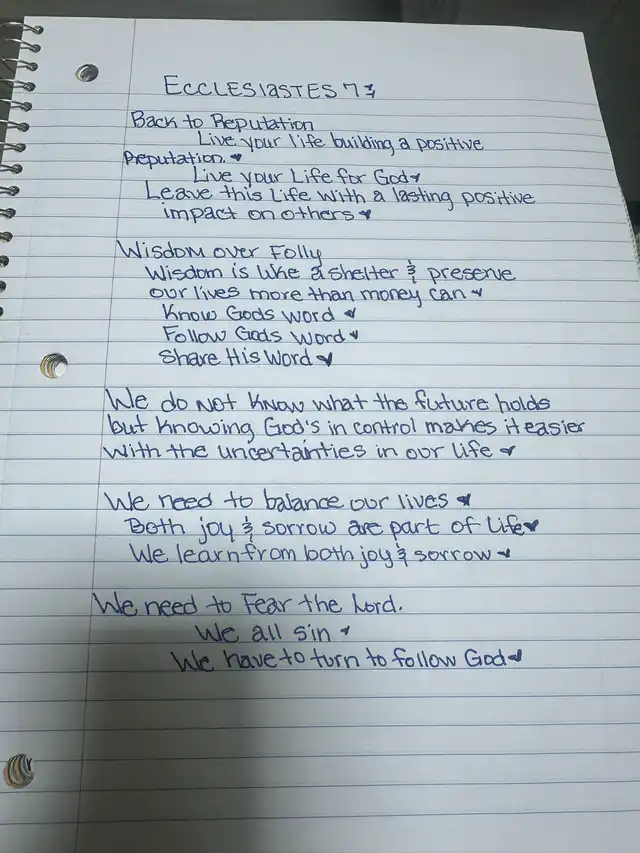 Ecclesiastes 7
Back to Reputation
Live your life building a positive
Reputation. ♥
Live your Life for God ♥
Leave this Life with a lasting positive
impact on others ♥
Wisdom over Folly
Wisdom is like a shelter & preserve
our lives more than money can ♥
Know Gods word ♥
Follow Gods Word ♥
Share His Word ♥
We do not know what the future holds
but knowing God's in control makes it easier
with the uncertainties in our life ♥
We need to balance our lives ♥
Both joy & sorrow are part of life ♥
We learn from both joy & sorrow ♥
We need to Fear the Lord.
We all sin ♥
We have to turn to follow God ♥